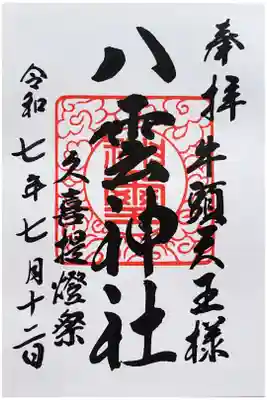 奉拝
牛頭天王様
八雲神社
久喜提燈祭
令和七年七月十二日